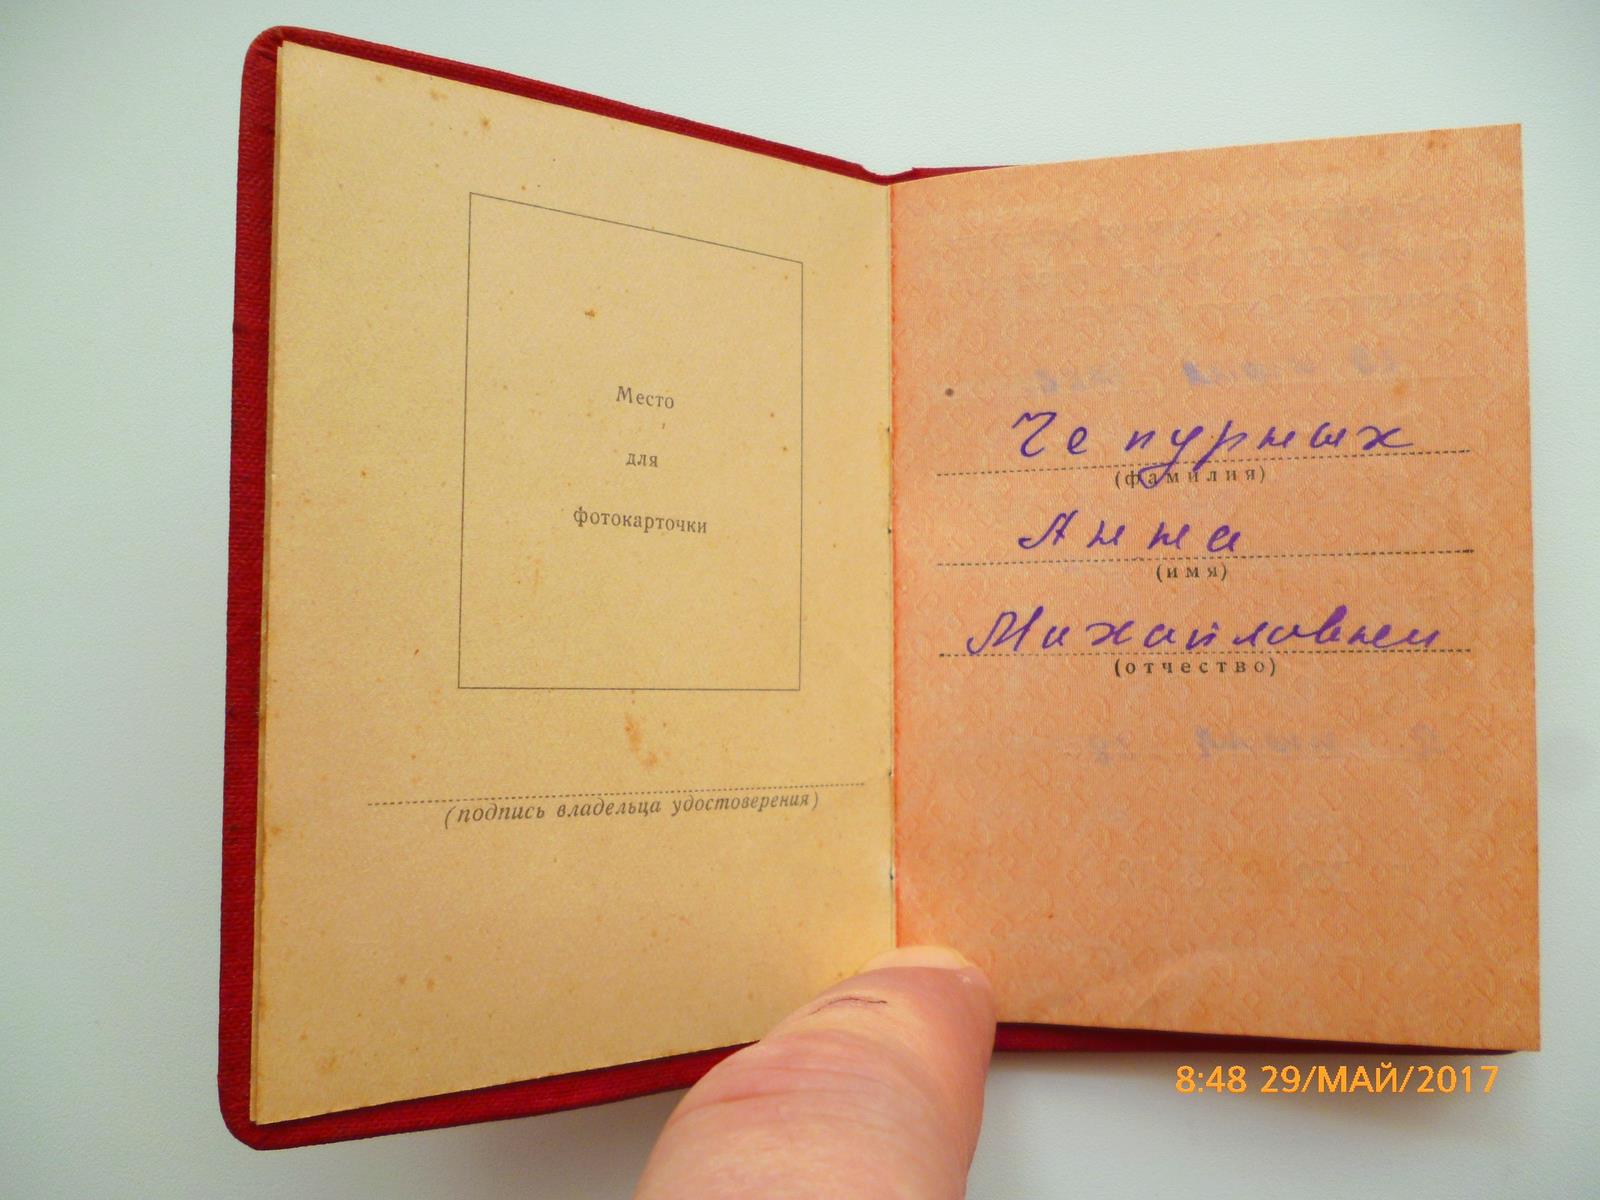 Место
для
фотокарточки
(подпись владельца удостоверения)
Чепурных
(фамилия)
Анна
(имя)
Михайловна
(отчество)
8:48 29/МАЙ/2017